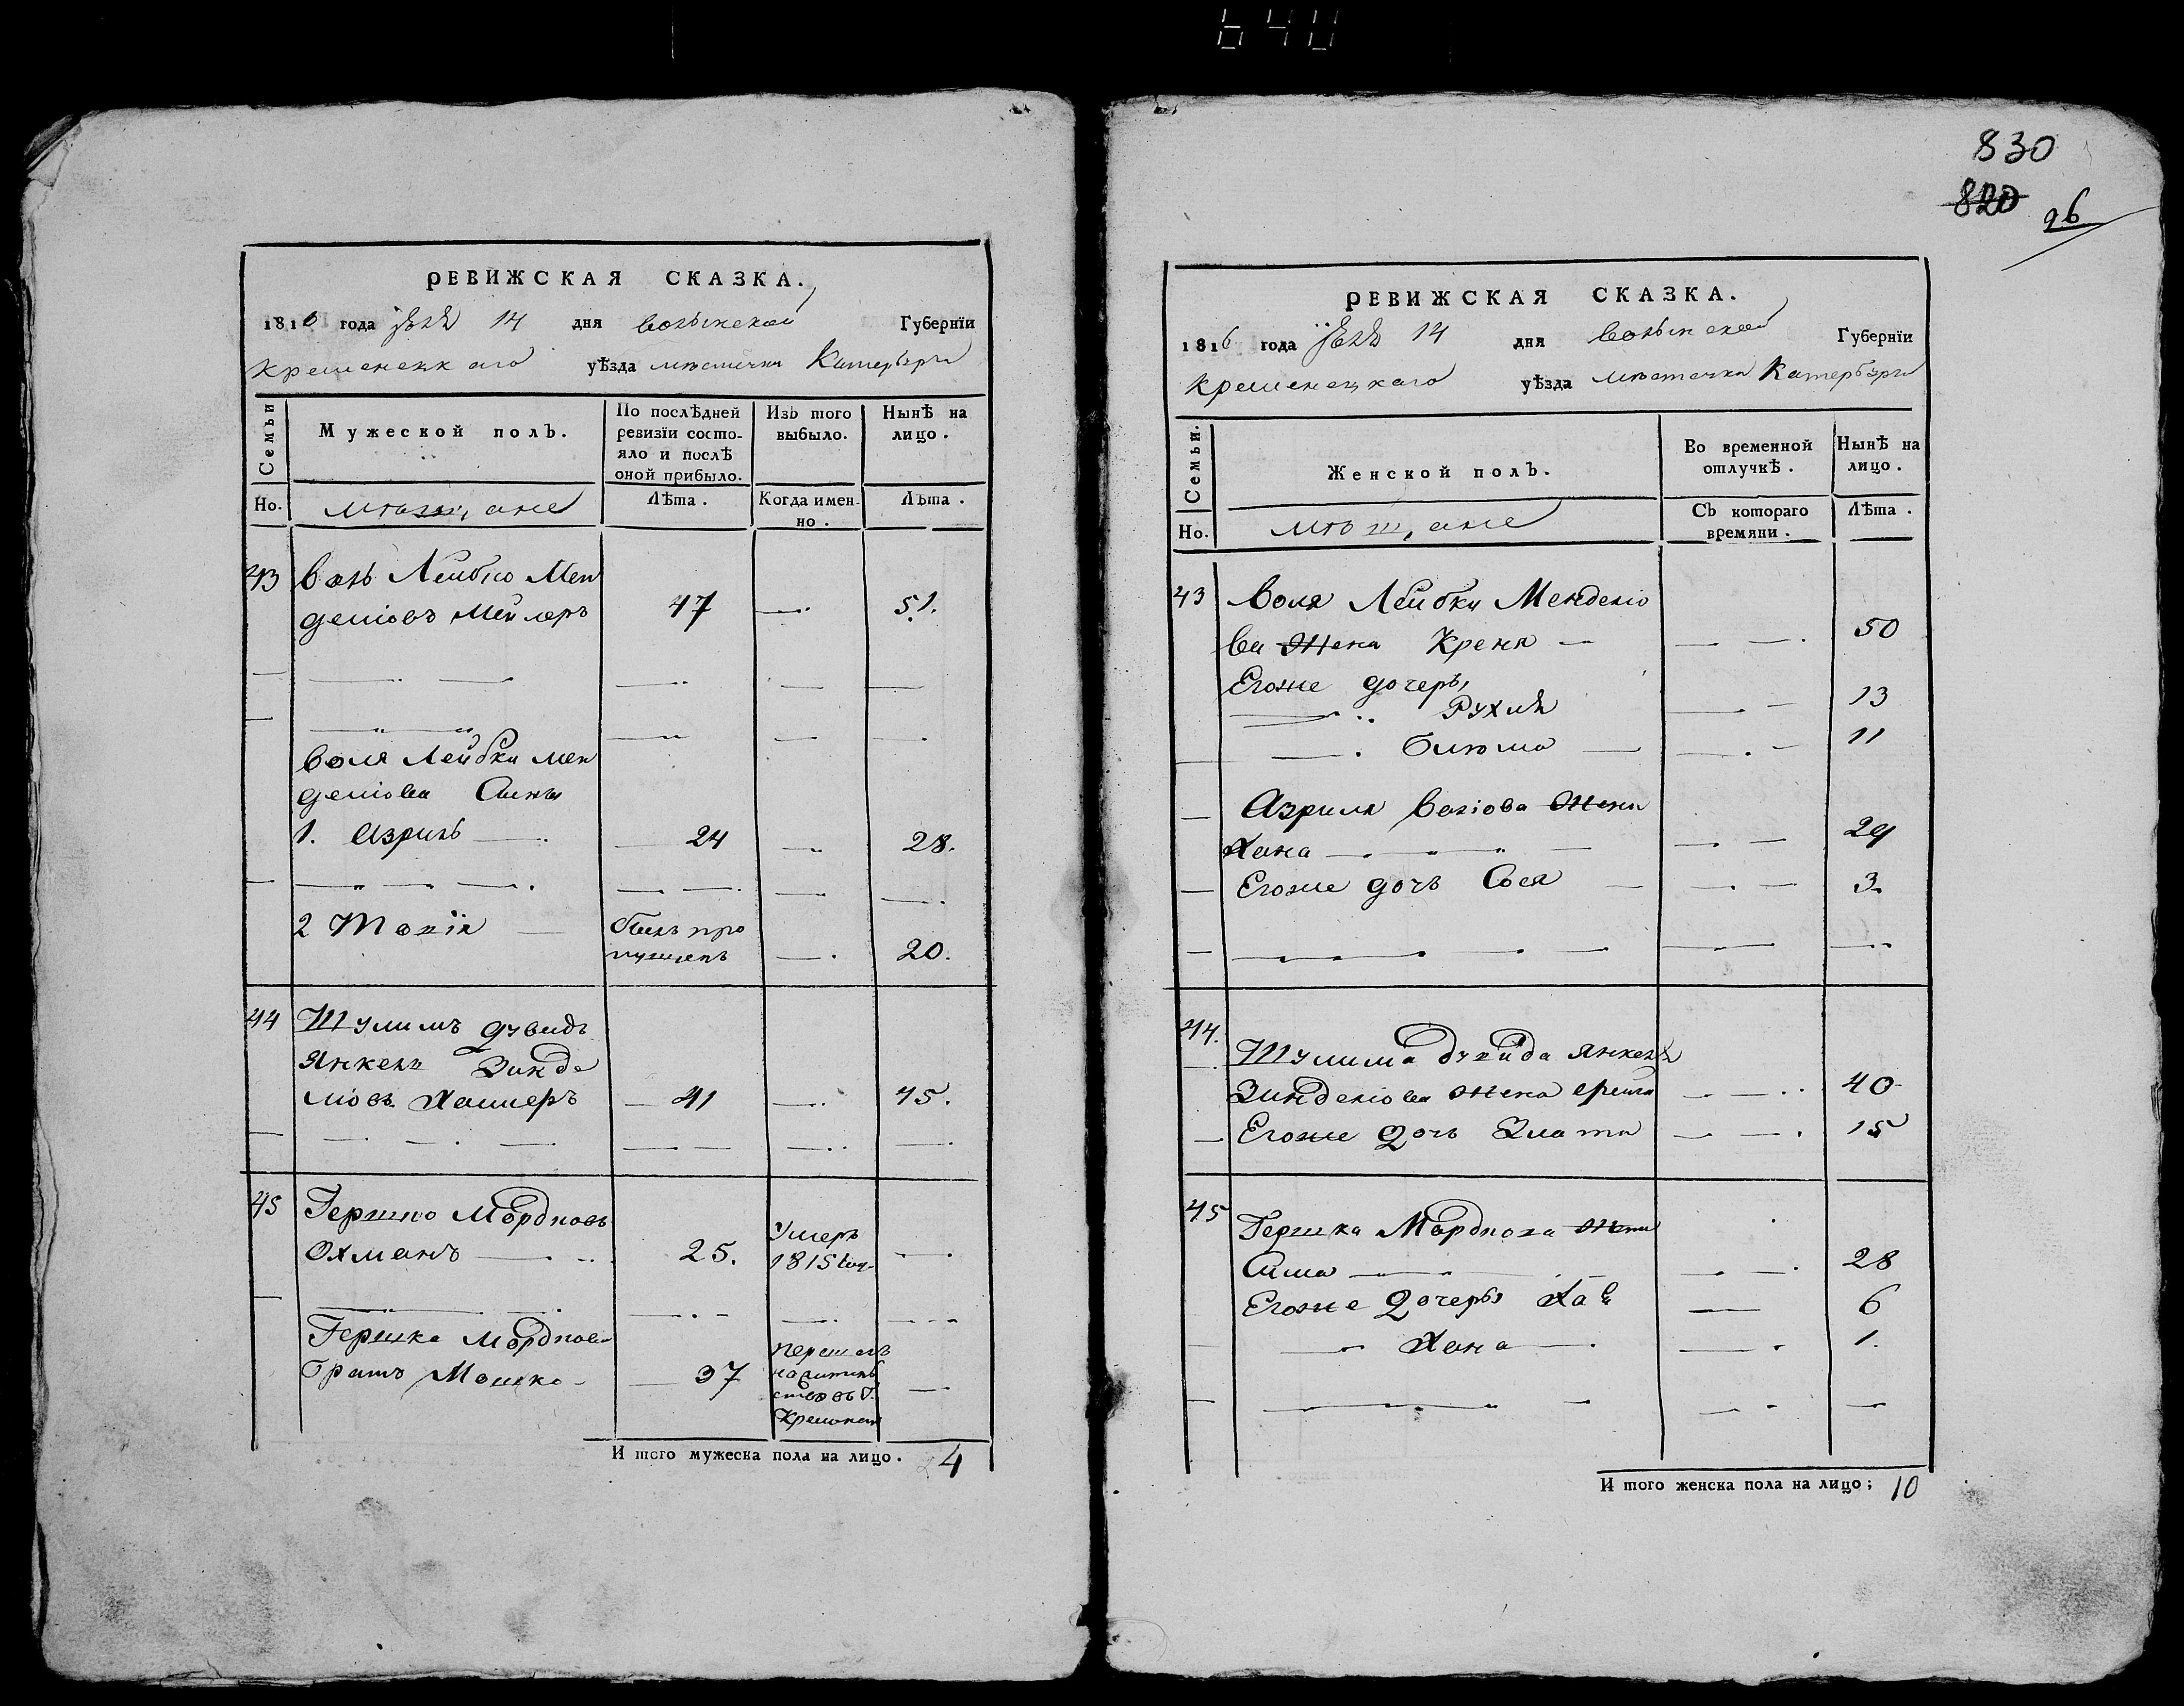 640
РЕВИЖСКАЯ СКАЗКА.
1816 года 14 дня Волынской Губернїи
Кременецкаго уѣзда мѣстечка Катербурга
Семьи
Мужеской полъ.
По послѣдней ревизїи состояло и послѣ оной прибыло.
Изъ того выбыло.
Нынѣ на лицо.
Но.
мѣщане
Лѣта.
Когда именно.
Лѣта.
43 Воль Лейбко Мен
деліовъ Мейлеръ 47 51.
Воля Лейбки Мен
деліова Сины
1. Азриль 24 28.
2 Тохія Билъ про
пущенъ 20.
44 Шулимъ Дувидъ
Янкель Зинде
ліовъ Хаммеръ 41 45.
45 Гершко Мордковъ
Охманъ 25. Умеръ
1815 год
Гершка Мордкова
Братъ Мошко 37 перешолъ
на жительство въ г.
Кременец
И того мужеска пола на лицо. 4
830
820
96
РЕВИЖСКАЯ СКАЗКА.
1816 года 14 дня Волынской Губернїи
Кременецкаго уѣзда мѣстечка Катербурга
Семьи.
Женской полъ.
Во временной отлучкѣ.
Нынѣ на лицо.
Но.
мѣщане
Съ котораго времяни.
Лѣта.
43 Воля Лейбки Менделіо
ва Жена Креня 50
Егоже дочерь,
Рухля 13
Блюма 11
Азриля Воліова Жена
Хана 29
Егоже дочь Сося 3.
44. Шулима Дувида Янкеля
Зинделіова Жена Фрейга 40
Егоже Дочь Злата 15
45 Гершка Мордкова Жена
Сима 28
Егоже Дочеры Хава 6
Хана 1.
И того женска пола на лицо; 10